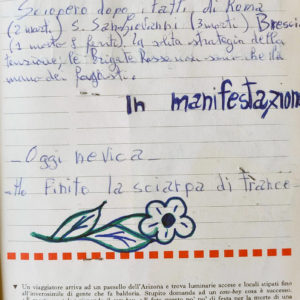 Sciopero dopo i fatti di Roma
(2 morti) S. San Giovanni (3 morti) Brescia
(1 morto 8 feriti). la solita strategia della
tensione; le brigate Rosse non sono che la
mano dei fascisti.
In manifestazione
- Oggi nevica -
- Ho finito la sciarpa di France
Un viaggiatore arriva ad un paesello dell'Arizona e trova luminarie accese e locali stipati fino
all'inverosimile di gente che fa baldoria. Stupito domanda ad un cow-boy cosa è successo.